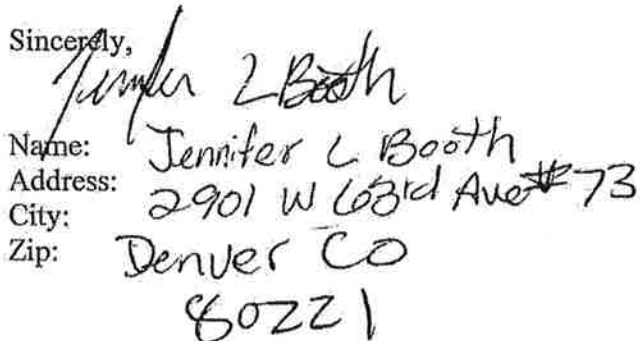 Sincerely,
Jennifer L Booth
Name: Jennifer L Booth
Address: 2901 W 63rd Ave #73
City: Denver CO
Zip: 80221